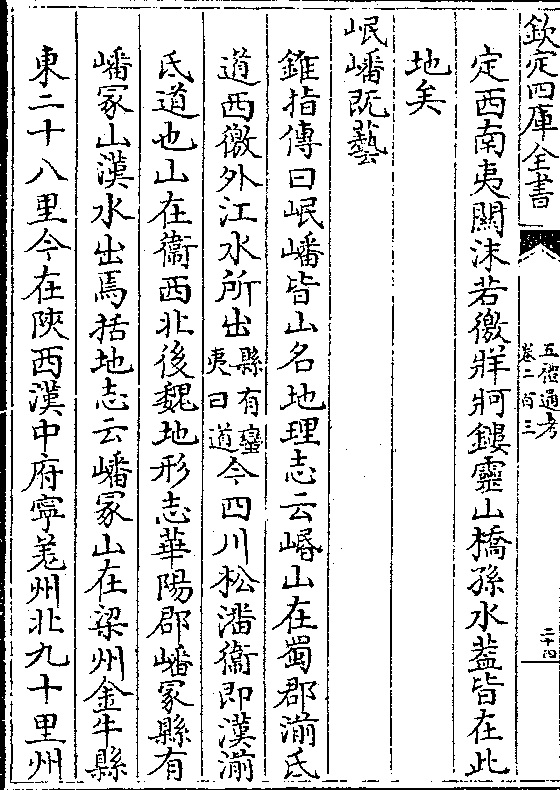 欽定四庫全書
五禮通考
卷二百三
二十四
定西南夷關沬若徼牂牁鏤靈山橋孫水葢皆在此
地矣
岷嶓既藝
錐指傳曰岷嶓皆山名地理志云㟭山在蜀郡湔氐
道西徼外江水所出縣有蠻夷曰道今四川松潘衞即漢湔
氐道也山在衞西北後魏地形志華陽郡嶓冢縣有
嶓冢山漢水出焉括地志云嶓冢山在梁州金牛縣
東二十八里今在陝西漢中府寧羌州北九十里州